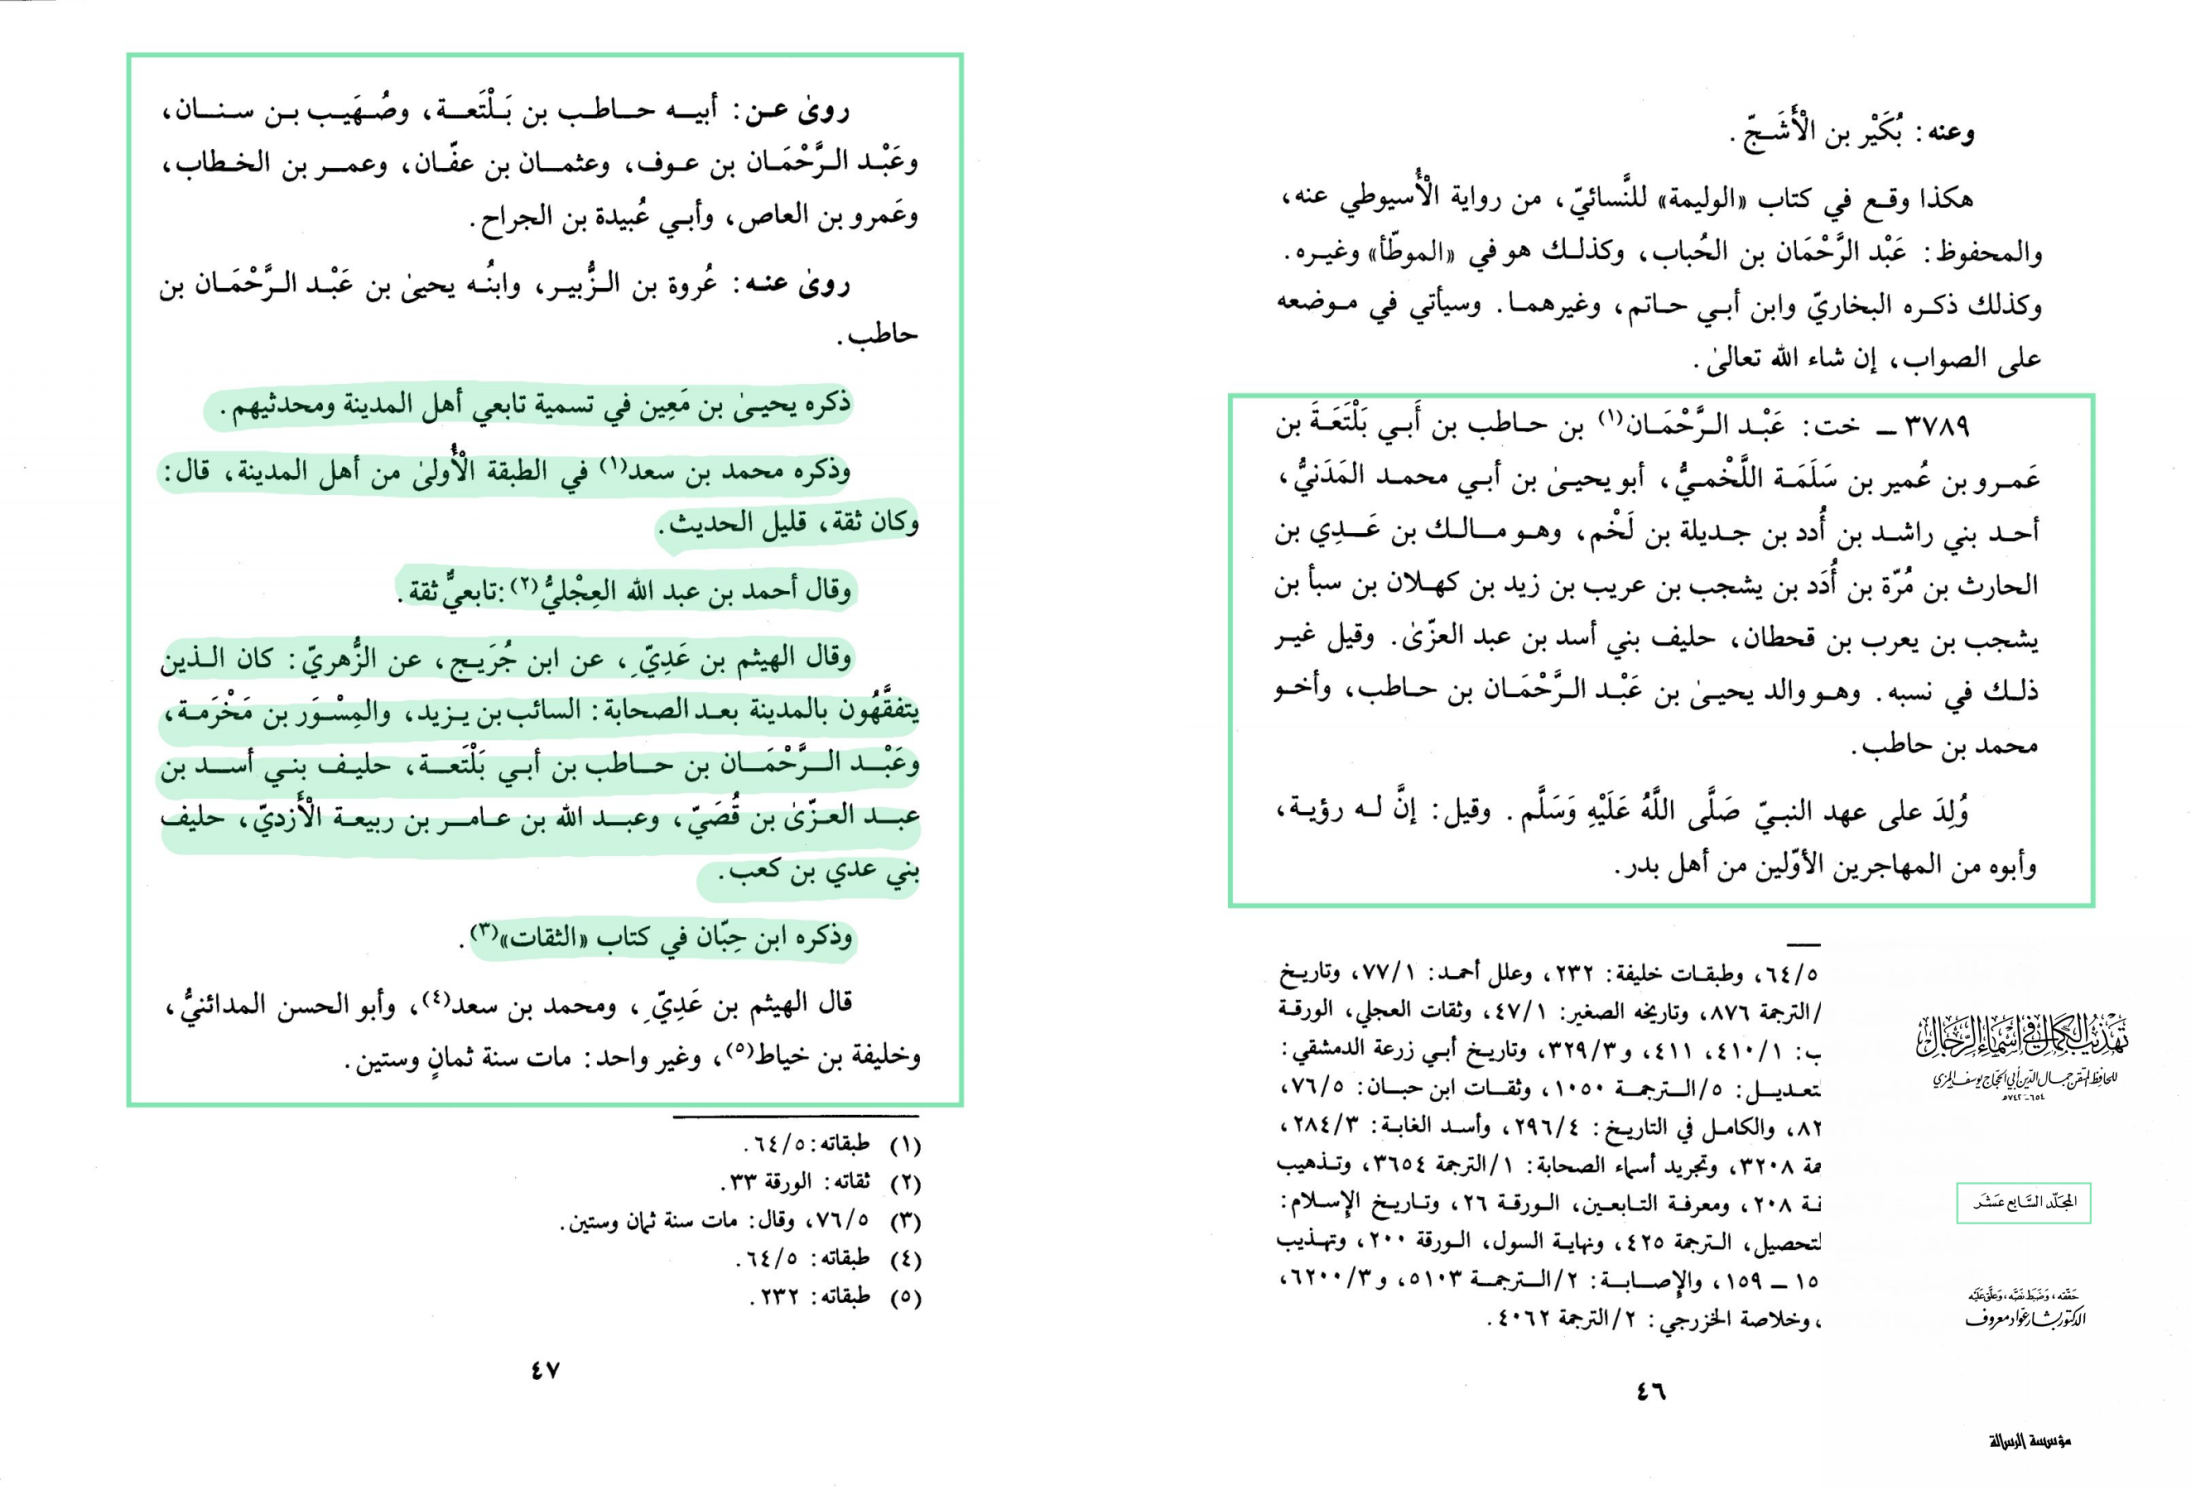 وعنه: بُكَيْر بن الْأَشَجّ.
هكذا وقع في كتاب «الوليمة» للنَّسائيّ، من رواية الْأُسيوطي عنه،
والمحفوظ: عَبْد الرَّحْمَان بن الحُباب، وكذلك هو في «الموطّأ» وغيره.
وكذلك ذكره البخاريّ وابن أبي حاتم، وغيرهما. وسيأتي في موضعه
على الصواب، إن شاء الله تعالىٰ.
٣٧٨٩ ــ خت: عَبْد الرَّحْمَان(١) بن حاطب بن أَبي بَلْتَعَةَ بن
عَمرو بن عُمير بن سَلَمَة اللَّخْميُّ، أبو يحيىٰ بن أبي محمد المَدَنيُّ،
أحد بني راشد بن أُدد بن جديلة بن لَخْم، وهو مالك بن عَدِي بن
الحارث بن مُرّة بن أُدَد بن يشجب بن عريب بن زيد بن كهلان بن سبأ بن
يشجب بن يعرب بن قحطان، حليف بني أسد بن عبد العزّىٰ. وقيل غير
ذلك في نسبه. وهو والد يحيىٰ بن عَبْد الرَّحْمَان بن حاطب، وأخو
محمد بن حاطب.
وُلِدَ على عهد النبيّ صَلَّى اللَّهُ عَلَيْهِ وَسَلَّم. وقيل: إنَّ له رؤية،
وأبوه من المهاجرين الأوّلين من أهل بدر.
٦٤/٥، وطبقات خليفة: ٢٣٢، وعلل أحمد: ٧٧/١، وتاريخ
/الترجمة ٨٧٦، وتاريخه الصغير: ٤٧/١، وثقات العجلي، الورقة
ب: ٤١٠/١، ٤١١، و٣٢٩/٣، وتاريخ أبي زرعة الدمشقي:
لتعديل: ٥/الترجمة ١٠٥٠، وثقات ابن حبان: ٧٦/٥،
٨٢، والكامل في التاريخ: ٢٩٦/٤، وأسد الغابة: ٢٨٤/٣،
مة ٣٢٠٨، وتجريد أسماء الصحابة: ١/الترجمة ٣٦٥٤، وتذهيب
قة ٢٠٨، ومعرفة التابعين، الورقة ٢٦، وتاريخ الإسلام:
لتحصيل، الترجمة ٤٢٥، ونهاية السول، الورقة ٢٠٠، وتهذيب
١٥ ــ ١٥٩، والإصابة: ٢/الترجمة ٥١٠٣، و٦٢٠٠/٣،
، وخلاصة الخزرجي: ٢/الترجمة ٤٠٦٢.
٤٦
تهذيب الكمال في أسماء الرجال
للحافظ المتقن جمال الدين أبي الحجاج يوسف المزي
٦٥٤-٧٤٢هـ
المجلّد السَّابع عَشَر
حَقّقه، وَضَبط نصّه، وَعلّق عَليْه
الدكتور بشار عوّاد معروف
مؤسسة الرسالة
روىٰ عن: أبيه حاطب بن بَلْتَعة، وصُهَيب بن سنان،
وعَبْد الرَّحْمَان بن عوف، وعثمان بن عفّان، وعمر بن الخطاب،
وعَمرو بن العاص، وأبي عُبيدة بن الجراح.
روىٰ عنه: عُروة بن الزُّبير، وابنُه يحيىٰ بن عَبْد الرَّحْمَان بن
حاطب.
ذكره يحيىٰ بن مَعِين في تسمية تابعي أهل المدينة ومحدثيهم.
وذكره محمد بن سعد(١) في الطبقة الْأُولىٰ من أهل المدينة، قال:
وكان ثقة، قليل الحديث.
وقال أحمد بن عبد الله العِجْليُّ(٢): تابعيٌّ ثقة.
وقال الهيثم بن عَدِيّ، عن ابن جُرَيج، عن الزُّهريّ: كان الذين
يتفقَّهُون بالمدينة بعد الصحابة: السائب بن يزيد، والمِسْوَر بن مَخْرَمة،
وعَبْد الرَّحْمَان بن حاطب بن أبي بَلْتَعة، حليف بني أسد بن
عبد العزّىٰ بن قُصَيّ، وعبد الله بن عامر بن ربيعة الْأَزديّ، حليف
بني عدي بن كعب.
وذكره ابن حِبّان في كتاب «الثقات»(٣).
قال الهيثم بن عَدِيّ، ومحمد بن سعد(٤)، وأبو الحسن المدائنيُّ،
وخليفة بن خياط(٥)، وغير واحد: مات سنة ثمانٍ وستين.
(١) طبقاته: ٦٤/٥.
(٢) ثقاته: الورقة ٣٣.
(٣) ٧٦/٥، وقال: مات سنة ثمان وستين.
(٤) طبقاته: ٦٤/٥.
(٥) طبقاته: ٢٣٢.
٤٧